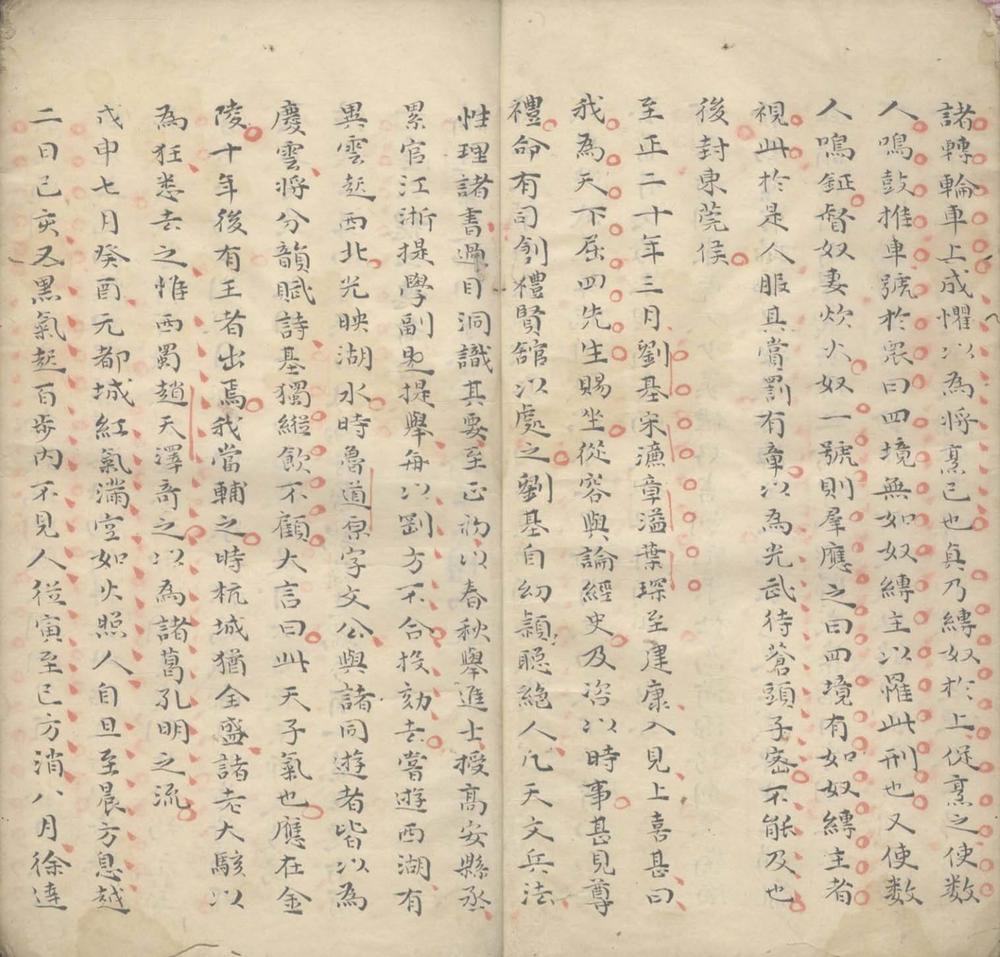 諸轉輪車上成懼以為將烹己也真乃縛奴於上促烹之使数
人鳴鼓推車號於衆曰四境無如奴縛主以罹此刑也又使数
人鳴鉦督奴妻炊火奴一號則羣應之曰四境有如奴縛主者
視此於是人服真賞罰有章以為光武待蒼頭子密不能及也
後封東莞侯
至正二十年三月劉基宋濂章溢葉琛至建康入見上喜甚曰
我為天下屈四先生賜坐從容與論經史及咨以時事甚見尊
禮命有司創禮賢舘以處之劉基自幼穎聡絶人凢天文兵法
性理諸書過目洞識其要至正初以春秋舉進士授高安縣丞
累官江浙提學副提舉每以剛方不合投劾去嘗遊西湖有
異雲起西北光映湖水時魯道原宇文公與諸同遊者皆以為
慶雲将分韻賦詩基獨縱飲不顧大言曰此天子氣也應在金
陵十年後有王者出焉我當輔之時杭城猶全盛諸老大駭以
為狂悉去之惟西蜀趙天澤竒之以為諸葛孔明之流
戊申七月癸酉元都城紅氣滿空如火照人自旦至晨方息越
二日己亥又黒氣起百步内不見人從寅至巳方消八月徐達